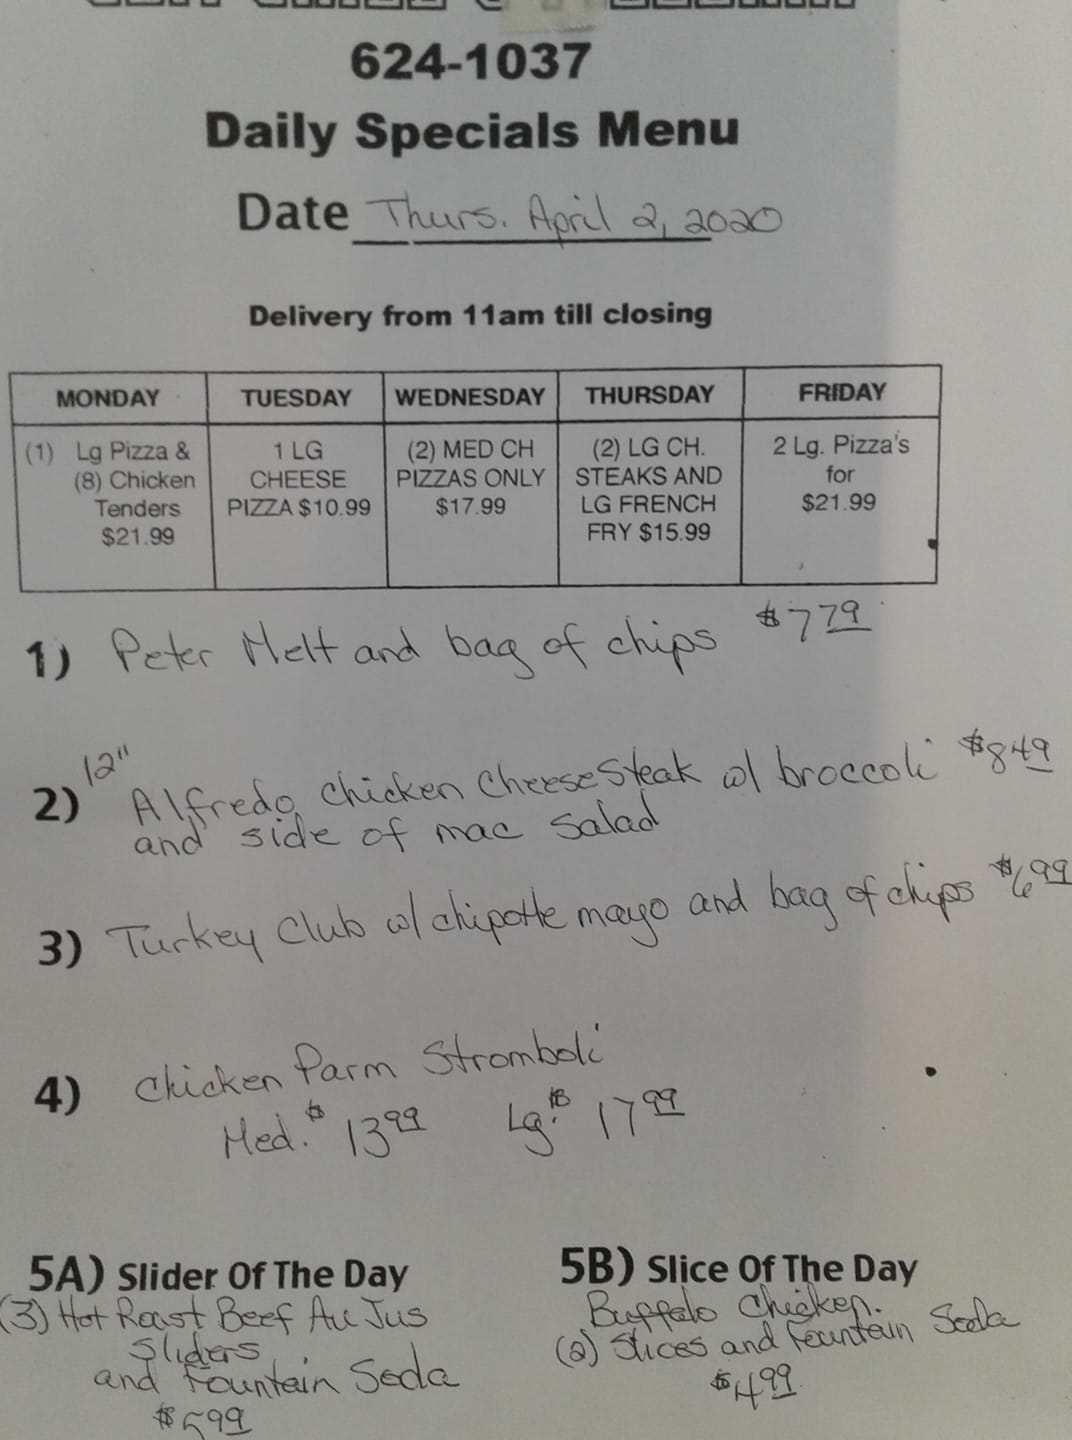 624-1037
Daily Specials Menu
Date Thurs. April 2, 2020
Delivery from 11am till closing
MONDAY TUESDAY WEDNESDAY THURSDAY FRIDAY
(1) Lg Pizza &
(8) Chicken
Tenders
$21.99
1 LG
CHEESE
PIZZA $10.99
(2) MED CH
PIZZAS ONLY
$17.99
(2) LG CH.
STEAKS AND
LG FRENCH
FRY $15.99
2 Lg. Pizza's
for
$21.99
1) Peter Melt and bag of chips $7 79
2) 12" Alfredo Chicken CheeseSteak w/ broccoli $8 49
and side of mac Salad
3) Turkey Club w/ chipotle mayo and bag of chips $6 99
4) Chicken Parm Stromboli
Med. $13 99 Lg. $17 99
5A) Slider Of The Day
(3) Hot Roast Beef Au Jus
Sliders
and Fountain Soda
$5 99
5B) Slice Of The Day
Buffalo Chicken.
(2) Slices and Fountain Soda
$4 99